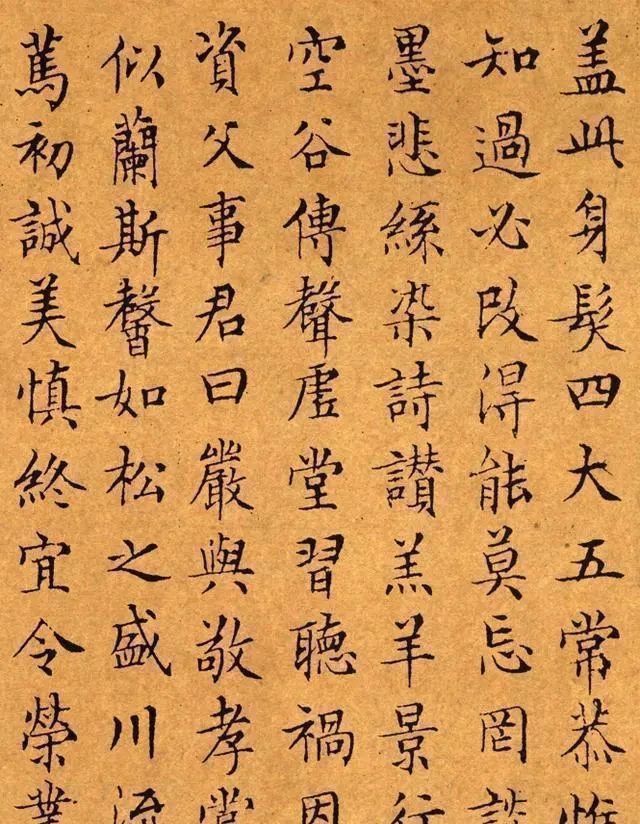 盖此身髮四大五常恭惟
知過必改得能莫忘罔談
墨悲絲染詩讃羔羊景行
空谷傳聲虛堂習聽禍因
資父事君曰嚴與敬孝當
似蘭斯馨如松之盛川流
篤初誠美慎終宜令榮業